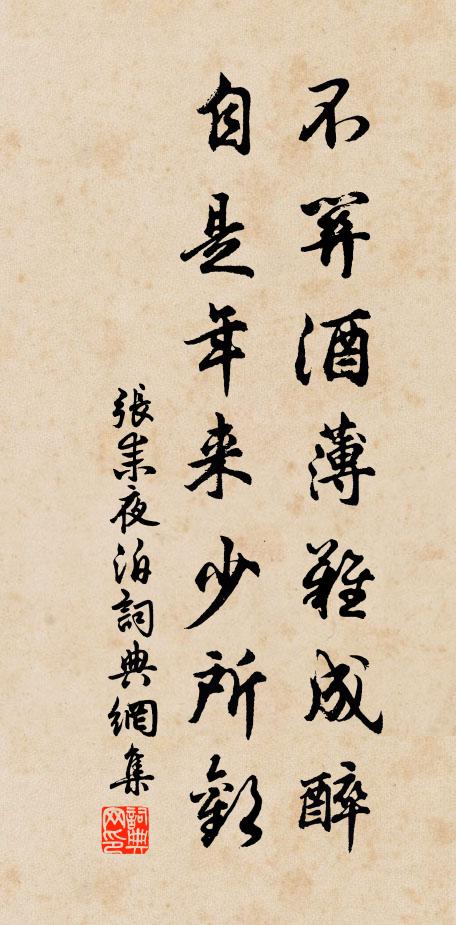 不關酒薄難成醉
自是年来少所歡
張耒夜泊詞典網集
詞典网印